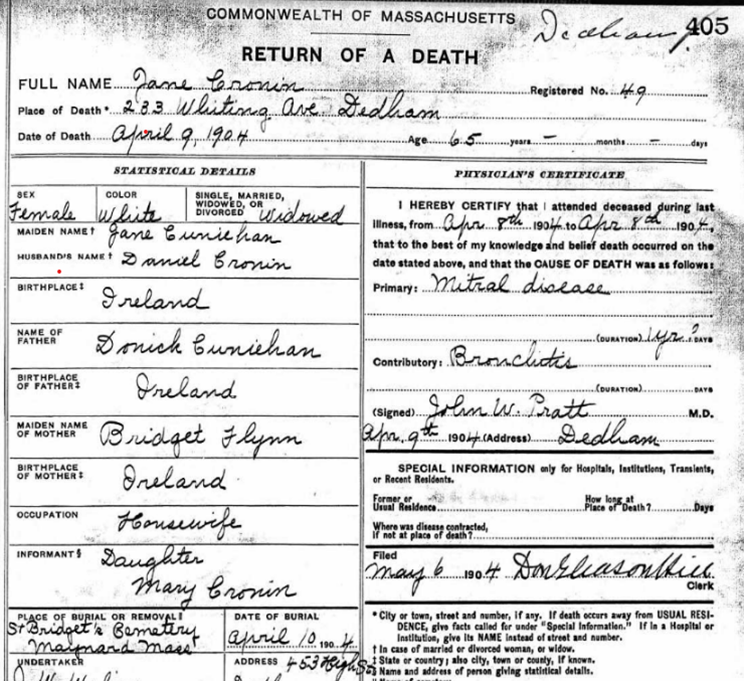 COMMONWEALTH OF MASSACHUSETTS
Dedham
405
RETURN OF A DEATH
FULL NAME Jane Cronin Registered No. 49
Place of Death* 233 Whiting Ave. Dedham
Date of Death April 9, 1904 Age 65 years - months - days
STATISTICAL DETAILS
SEX Female
COLOR White
SINGLE, MARRIED, WIDOWED, OR DIVORCED Widowed
MAIDEN NAME† Jane Cuniehan
HUSBAND'S NAME† Daniel Cronin
BIRTHPLACE‡ Ireland
NAME OF FATHER Donick Cuniehan
BIRTHPLACE OF FATHER‡ Ireland
MAIDEN NAME OF MOTHER Bridget Flynn
BIRTHPLACE OF MOTHER‡ Ireland
OCCUPATION Housewife
INFORMANT§ Daughter
Mary Cronin
PLACE OF BURIAL OR REMOVAL‖
St Bridget's Cemetery
Maynard Mass
DATE OF BURIAL
April 10 1904
UNDERTAKER
ADDRESS 453 High St
PHYSICIAN'S CERTIFICATE
I HEREBY CERTIFY that I attended deceased during last
illness, from Apr 8th 1904 to Apr 8th 1904,
that to the best of my knowledge and belief death occurred on the
date stated above, and that the CAUSE OF DEATH was as follows:
Primary: Mitral disease
(DURATION) 1 yr? DAYS
Contributory: Bronchitis
(DURATION) DAYS
(Signed) John W. Pratt M.D.
Apr. 9th 1904 (Address) Dedham
SPECIAL INFORMATION only for Hospitals, Institutions, Transients,
or Recent Residents.
Former or Usual Residence
How long at Place of Death? Days
Where was disease contracted,
If not at place of death?
Filed
May 6 1904 Don Gleason Hill
Clerk
* City or town, street and number, if any. If death occurs away from USUAL RESI-
DENCE, give facts called for under "Special Information." If in a Hospital or
Institution, give its NAME instead of street and number.
† In case of married or divorced woman, or widow.
‡ State or country; also city, town or county, if known.
§ Name and address of person giving statistical details.